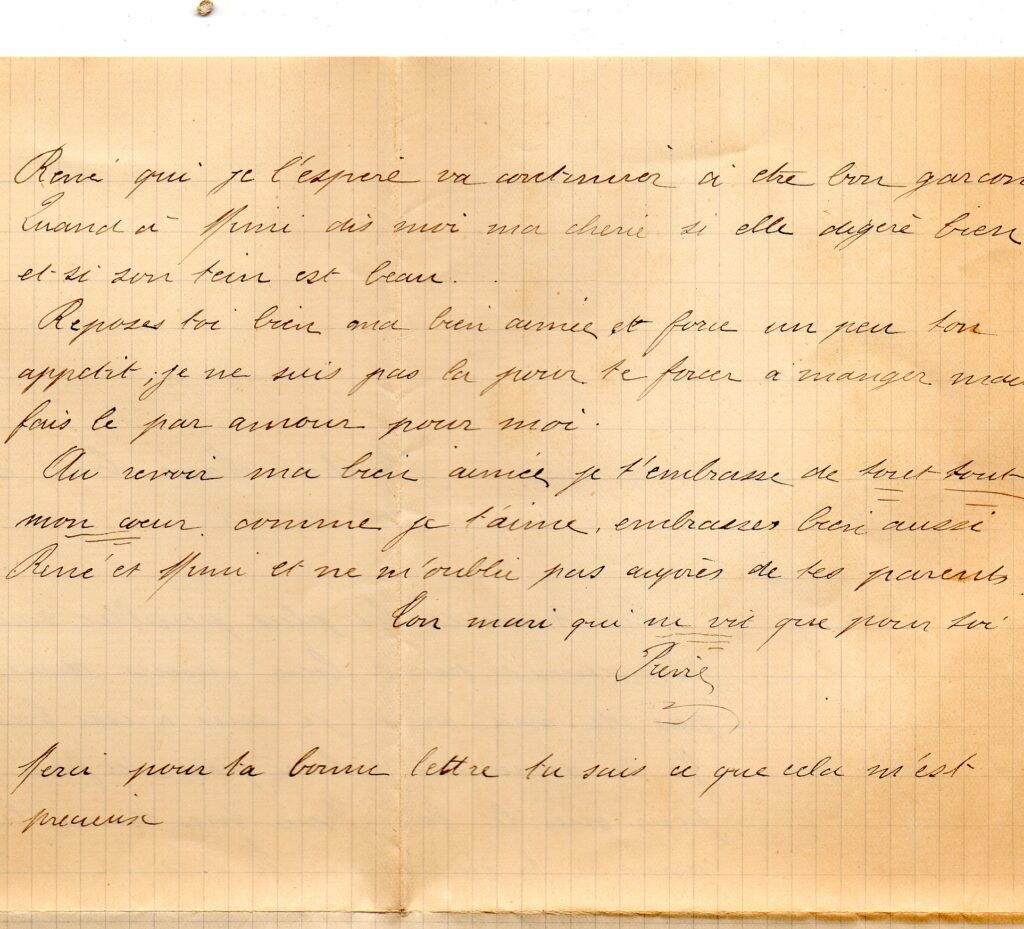 René qui je l'espere va continuer à etre bon garcon
Quand à Mimi dis moi ma cherie si elle digère bien
et si son tein est beau.
Reposes toi bien ma bien aimée et force un peu ton
appetit, je ne suis pas la pour te forcer a manger mais
fais le par amour pour moi.
Au revoir ma bien aimée je t'embrasse de tout tout
mon cœur comme je t'aime, embrasses bien aussi
René et Mimi et ne m'oublie pas auprès de tes parents.
Ton mari qui ne vit que pour toi
Pierre
Merci pour ta bonne lettre tu sais ce que cela m'est
precieux